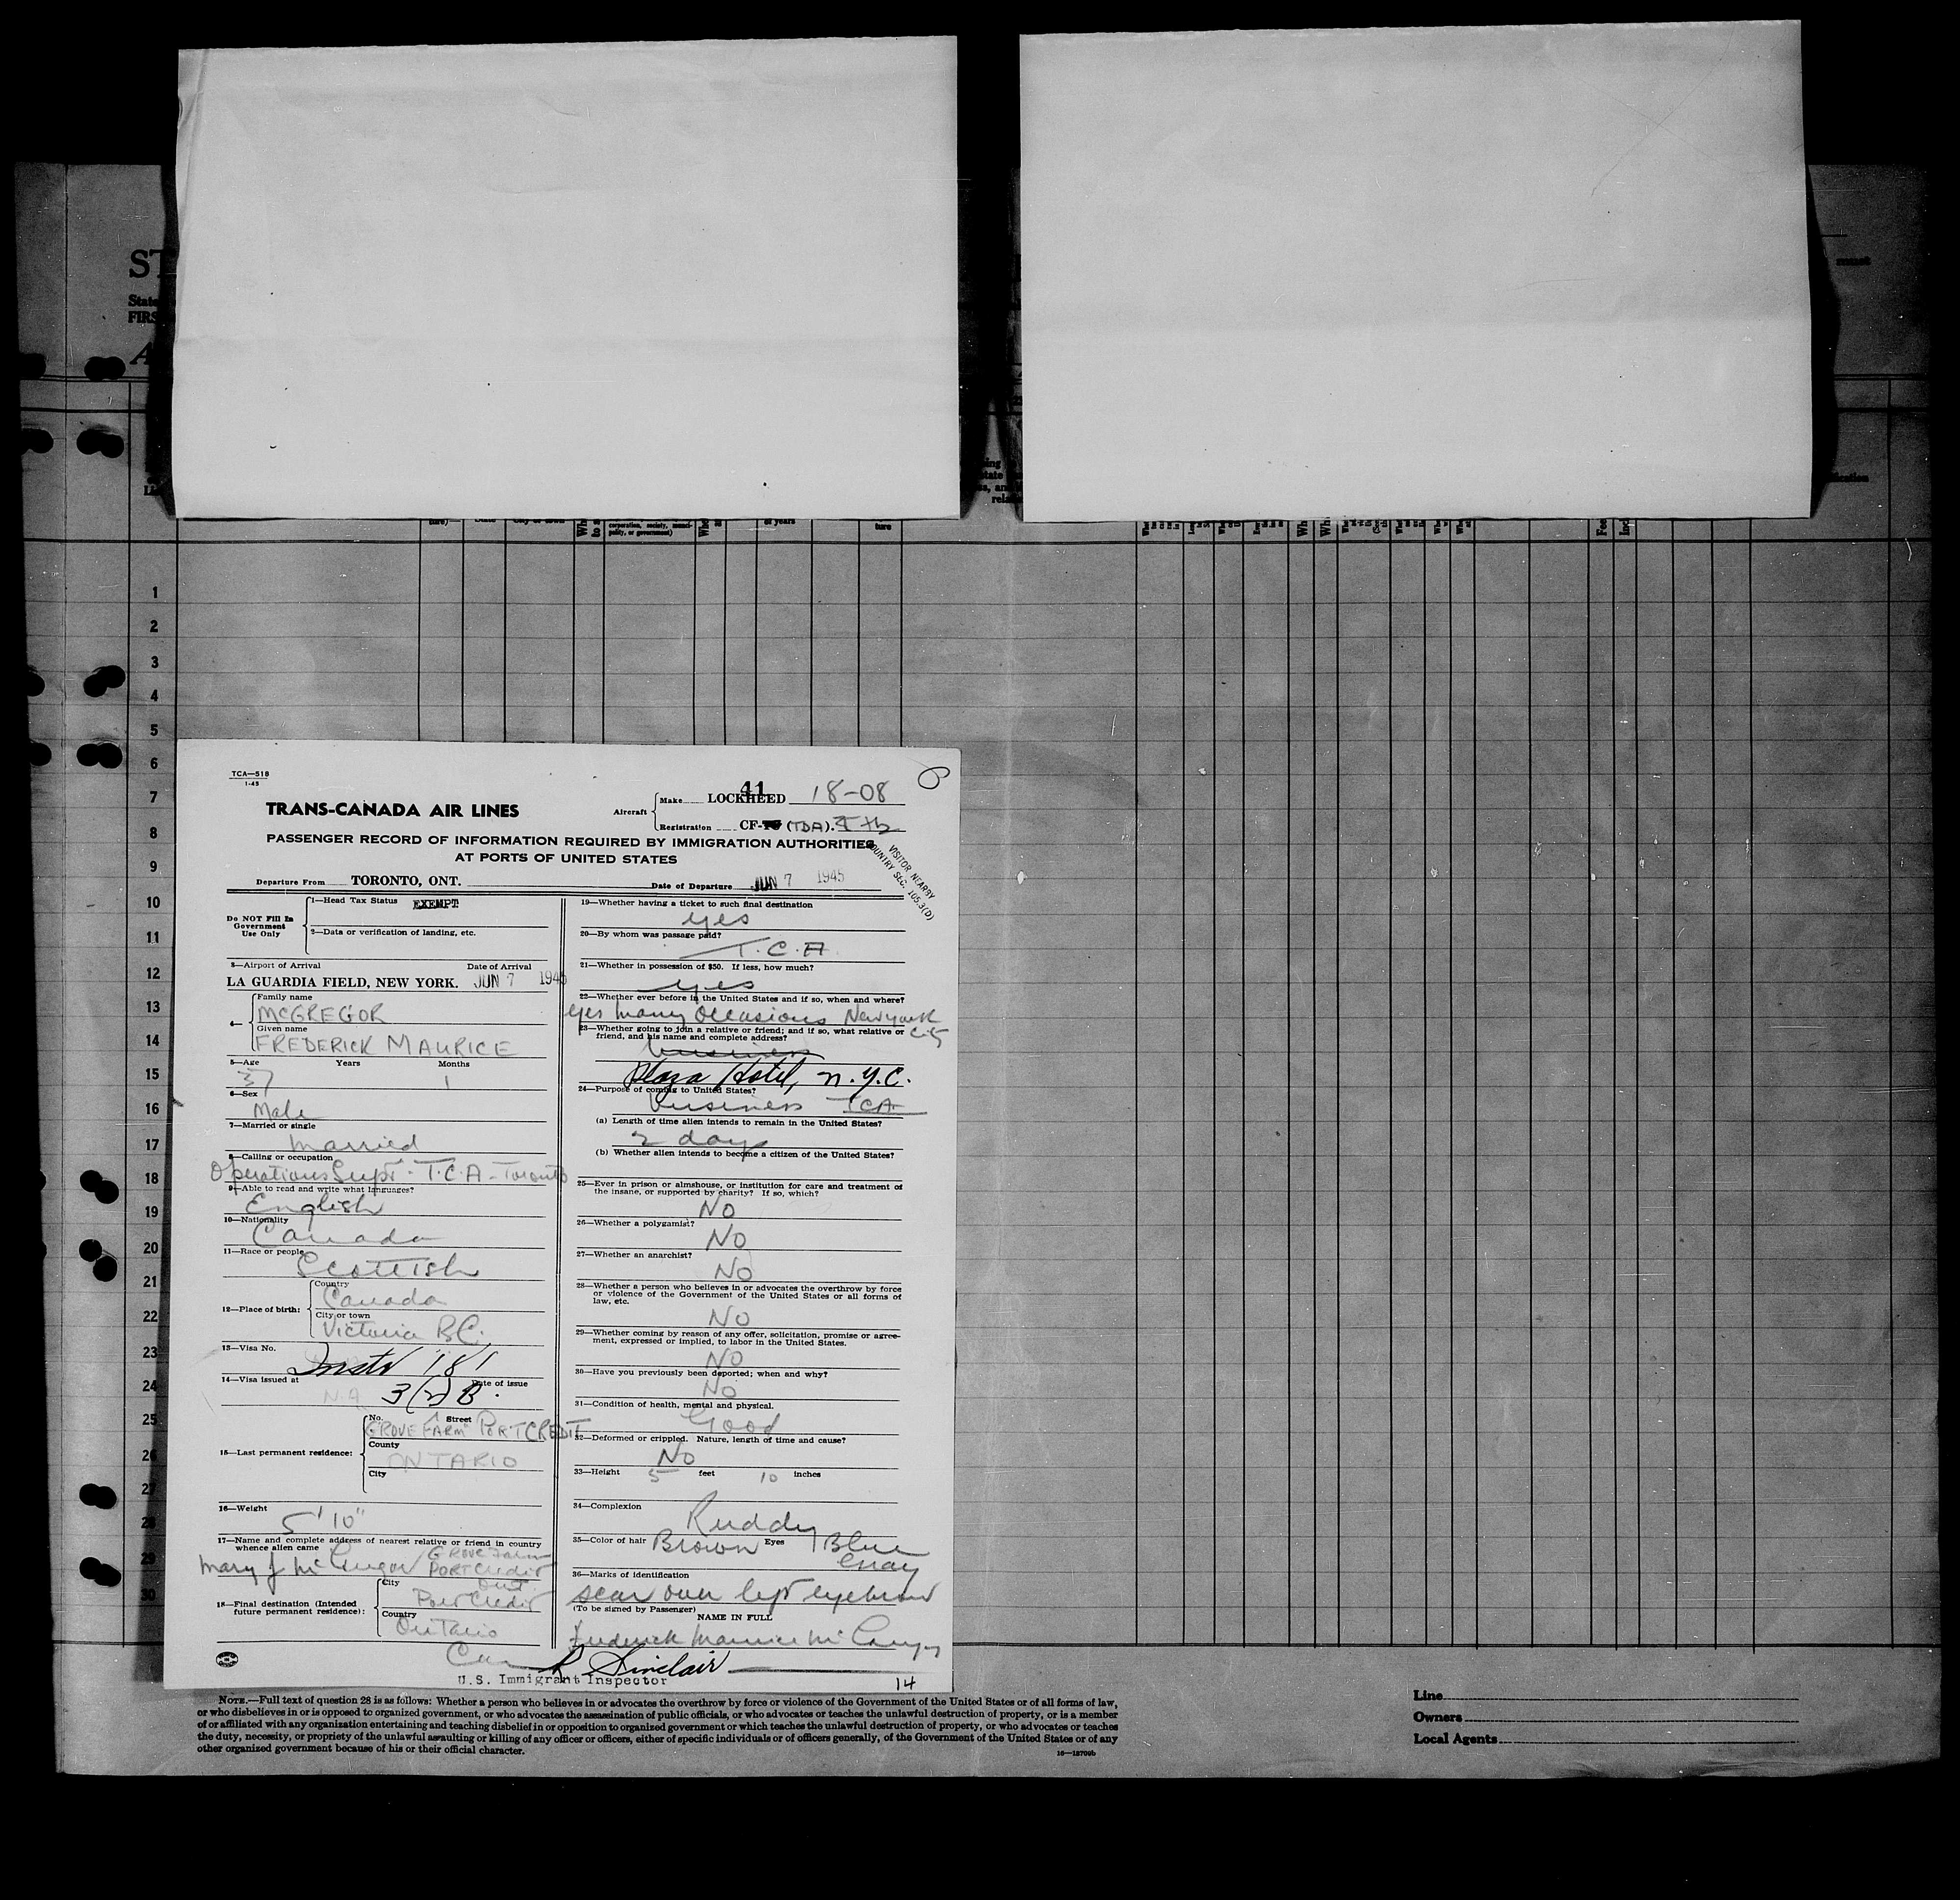 ST
State
FIRS
A
TCA—518
1-45
41
TRANS-CANADA AIR LINES
Aircraft
Make LOCKHEED 18-08
Registration CF- (TDA).
PASSENGER RECORD OF INFORMATION REQUIRED BY IMMIGRATION AUTHORITIES
AT PORTS OF UNITED STATES
VISITOR NEARBY
COUNTRY SEC. 105.3(D)
Departure From TORONTO, ONT. Date of Departure JUN 7 1945
Do NOT Fill In
Government
Use Only
1—Head Tax Status EXEMPT
2—Data or verification of landing, etc.
3—Airport of Arrival Date of Arrival
LA GUARDIA FIELD, NEW YORK. JUN 7 1945
4—
Family name
McGREGOR
Given name
FREDERICK MAURICE
5—Age Years Months
37 1
6—Sex
Male
7—Married or single
Married
8—Calling or occupation
Operations Supt. T.C.A - Toronto
9—Able to read and write what languages?
English
10—Nationality
Canada
11—Race or people
Scottish
12—Place of birth:
Country
Canada
City or town
Victoria B.C.
13—Visa No.
Instr 181
14—Visa issued at Date of issue
N.A 3(2)B.
15—Last permanent residence:
No. Street
GROVE FARM PORT CREDIT
County
ONTARIO
City
16—Weight
5' 10"
17—Name and complete address of nearest relative or friend in country
whence alien came
Mary J McGregor Grove Farm
Port Credit
Ont.
18—Final destination (Intended
future permanent residence):
City
Port Credit
Country
Ontario
19—Whether having a ticket to such final destination
yes
20—By whom was passage paid?
T.C.A
21—Whether in possession of $50. If less, how much?
yes
22—Whether ever before in the United States and if so, when and where?
yes many occasions New York
23—Whether going to join a relative or friend; and if so, what relative or
friend, and his name and complete address?
business
Plaza Hotel, N.Y.C.
24—Purpose of coming to United States?
business TCA
(a) Length of time alien intends to remain in the United States?
2 days
(b) Whether alien intends to become a citizen of the United States?
25—Ever in prison or almshouse, or institution for care and treatment of
the insane, or supported by charity? If so, which?
No
26—Whether a polygamist?
No
27—Whether an anarchist?
No
28—Whether a person who believes in or advocates the overthrow by force
or violence of the Government of the United States or all forms of
law, etc.
No
29—Whether coming by reason of any offer, solicitation, promise or agree-
ment, expressed or implied, to labor in the United States.
No
30—Have you previously been deported; when and why?
No
31—Condition of health, mental and physical.
Good
32—Deformed or crippled. Nature, length of time and cause?
No
33—Height 5 feet 10 inches
34—Complexion
Ruddy
35—Color of hair Brown Eyes Blue
Gray
36—Marks of identification
scar over left eyebrow
(To be signed by Passenger)
NAME IN FULL
Frederick Maurice McGregor
R Sinclair
U.S. Immigrant Inspector
14
1
2
3
4
5
6
7
8
9
10
11
12
13
14
15
16
17
18
19
20
21
22
23
24
25
26
27
28
29
30
NOTE.—Full text of question 28 is as follows: Whether a person who believes in or advocates the overthrow by force or violence of the Government of the United States or of all forms of law,
or who disbelieves in or is opposed to organized government, or who advocates the assassination of public officials, or who advocates or teaches the unlawful destruction of property, or is a member
of or affiliated with any organization entertaining and teaching disbelief in or opposition to organized government or which teaches the unlawful destruction of property, or who advocates or teaches
the duty, necessity, or propriety of the unlawful assaulting or killing of any officer or officers, either of specific individuals or of officers generally, of the Government of the United States or of any
other organized government because of his or their official character.
16—13709b
Line
Owners
Local Agents